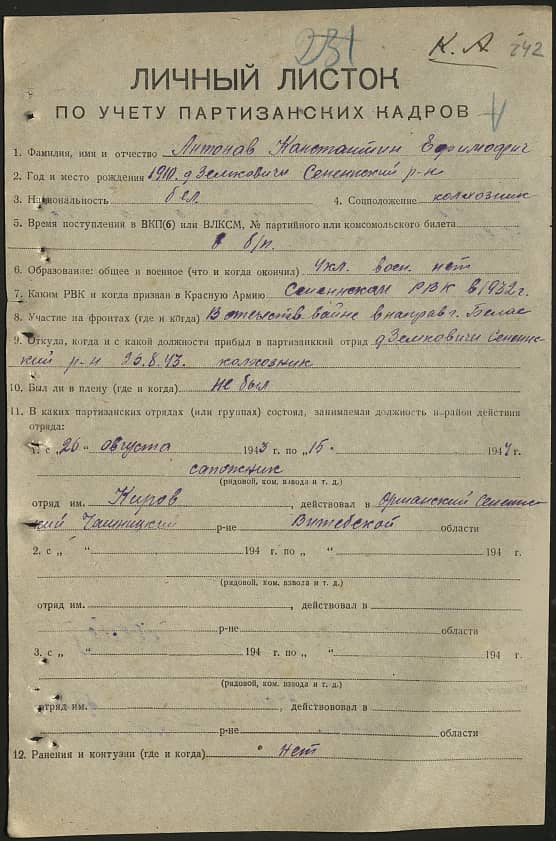 231
К. А 242
ЛИЧНЫЙ ЛИСТОК
ПО УЧЕТУ ПАРТИЗАНСКИХ КАДРОВ
1. Фамилия, имя и отчество Антонав Канстантин Ефимович
2. Год и место рождения 1910. д Земковичи Сененский р-н
3. Национальность бел. 4. Соцположение колхозник
5. Время поступления в ВКП(б) или ВЛКСМ, № партийного или комсомольского билета
б/п.
6. Образование: общее и военное (что и когда окончил) 4 кл. воен. нет
7. Каким РВК и когда призван в Красную Армию Сененскам РВК в 1932 г.
8. Участие на фронтах (где и когда) В отечеств. войне в направ г. Белас
9. Откуда, когда и с какой должности прибыл в партизанкий отряд д Земковичи Сененс-
кий р-н 26.8.43. колхозник
10. Был ли в плену (где и когда) не был
11. В каких партизанских отрядах (или группах) состоял, занимаемая должность и район действия
отряда:
1. с „26“ августа 1943 г. по „15. “ 1944 г.
сапожник
(рядовой, ком. взвода и т. д.)
отряд им. Киров, действовал в Оршанский Сенен-
ский Чашницкий р-не Витебской области
2. с „ “ 194 г. по „ “ 194 г.
(рядовой, ком. взвода и т. д.)
отряд им. , действовал в
р-не области
3. с „ “ 194 г. по „ “ 194 г.
(рядовой, ком. взвода и т. д.)
отряд им. , действововал в
р-не области
12. Ранения и контузии (где и когда) нет